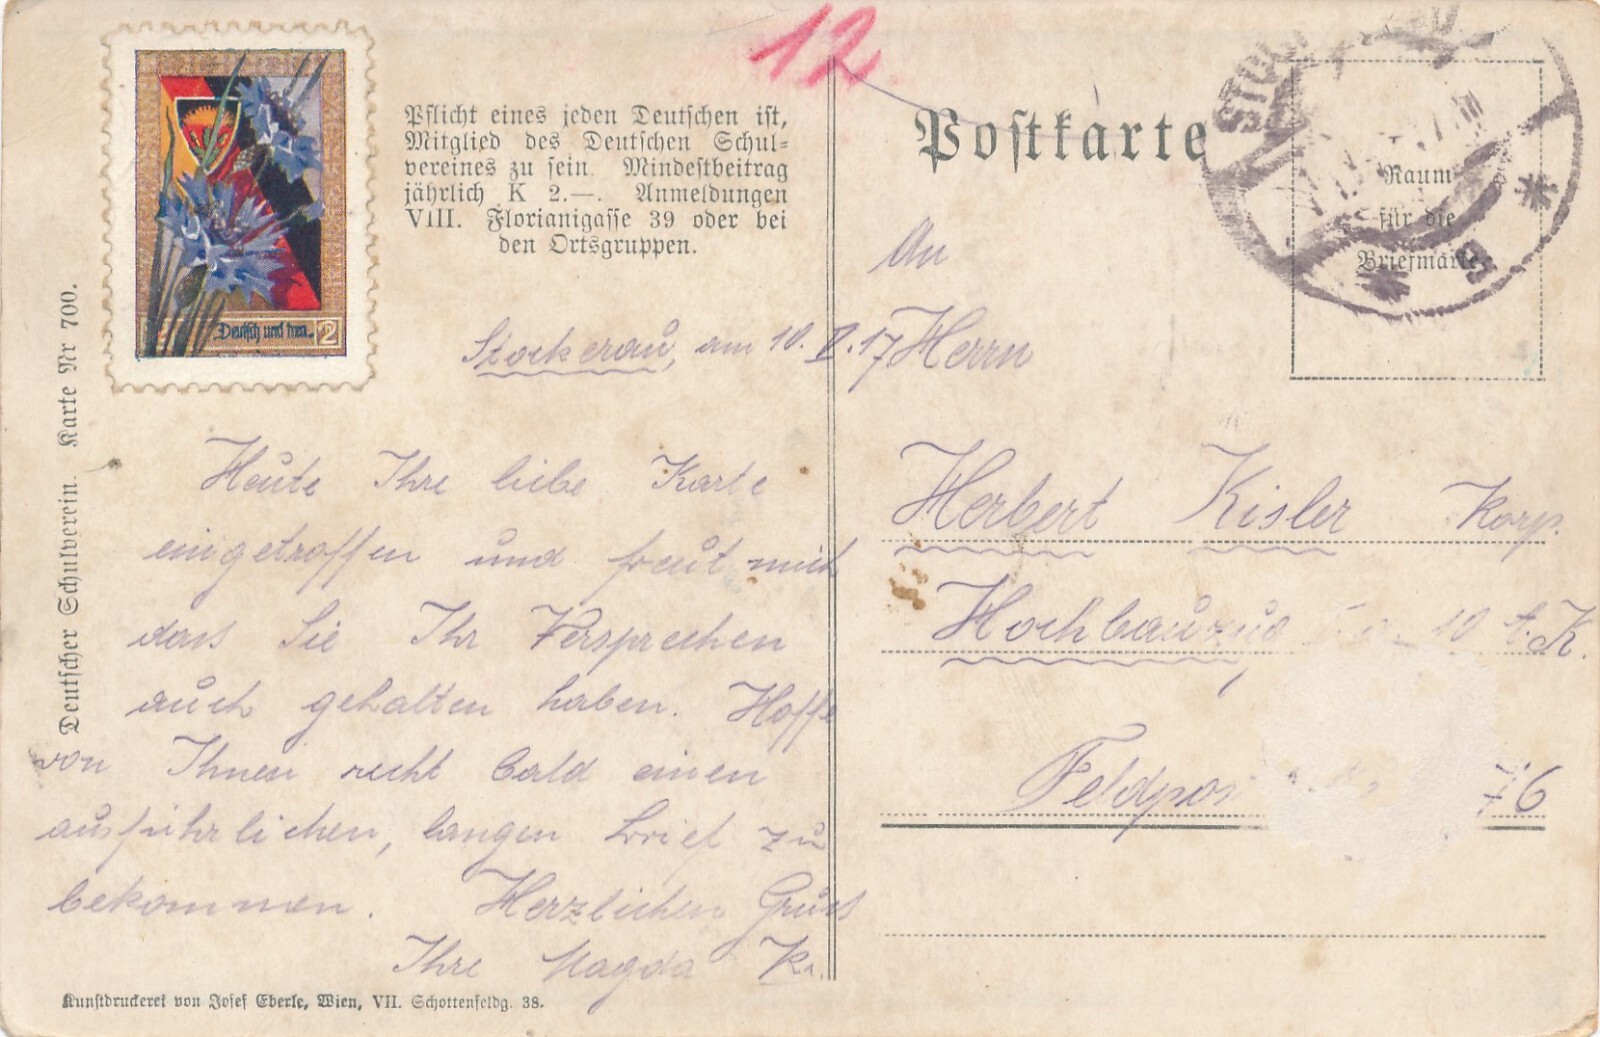 12
Pflicht eines jeden Deutschen ist,
Mitglied des Deutschen Schul-
vereines zu sein. Mindestbeitrag
jährlich K 2.—. Anmeldungen
VIII. Florianigasse 39 oder bei
den Ortsgruppen.
Deutsch und treu. 2
Deutscher Schulverein. Karte Nr 700.
Stockerau, am 10. V. 17
Heute Ihre liebe Karte
eingetroffen und freut mich
dass Sie Ihr Versprechen
auch gehalten haben. Hoffe
von Ihnen recht bald einen
ausführlichen, langen Brief zu
bekommen. Herzlichen Gruss
Ihre Magda Kr.
Kunstdruckerei von Josef Eberle, Wien, VII. Schottenfeldg. 38.
Postkarte
Raum
für die
Briefmarke
An
Herrn
Herbert Kisler Korp.
Hochbauzug 10 A. K.
Feldpos 76